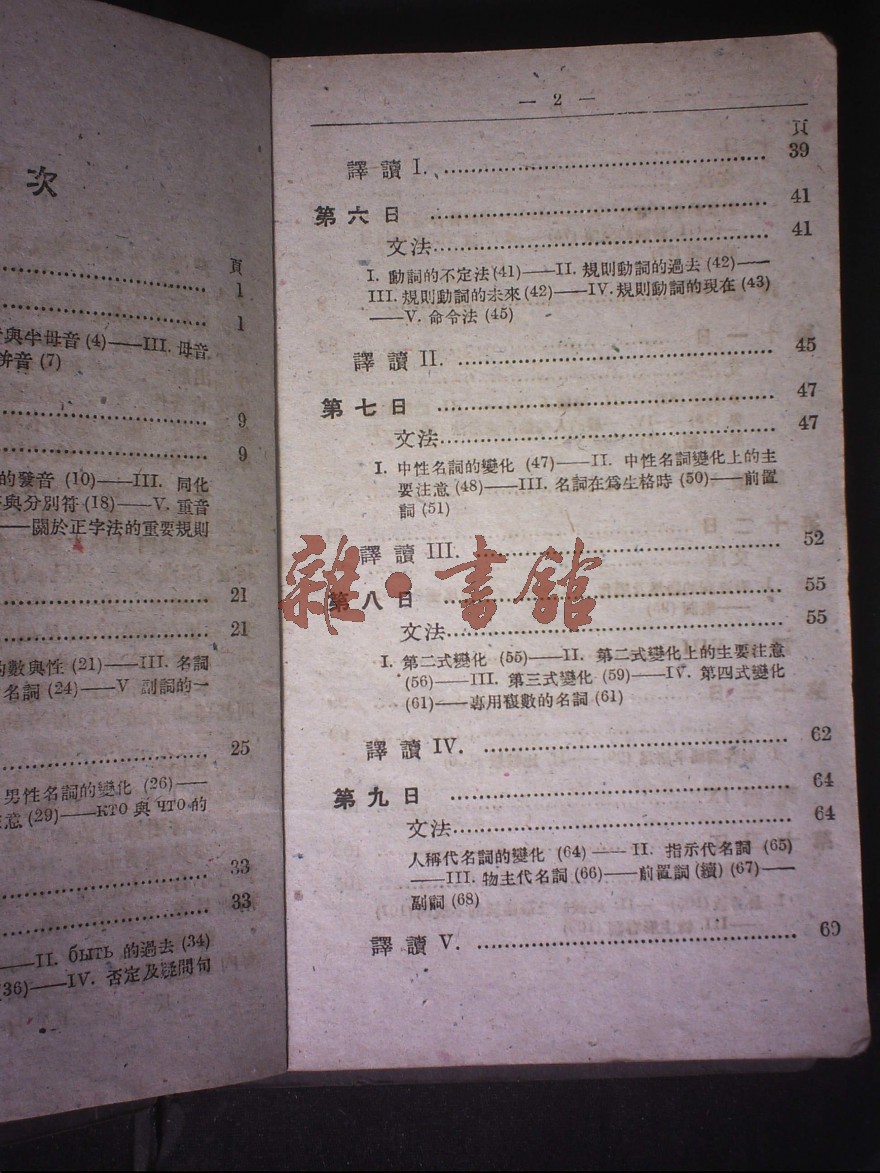 次
頁
1
1
與半母音 (4)——III. 母音
拼音 (7)
9
9
的發音 (10)——III. 同化
與分別符 (18)——V. 重音
——關於正字法的重要規則
21
21
的數與性 (21)——III. 名詞
名詞 (24)——V 副詞的一
25
男性名詞的變化 (26)——
注意 (29)——КТО 與 ЧТО 的
33
33
——II. быть 的過去 (34)
(36)——IV. 否定及疑問句
— 2 —
頁
譯讀 I. 39
第六日 41
文法 41
I. 動詞的不定法 (41)——II. 規則動詞的過去 (42)——
III. 規則動詞的未來 (42)——IV. 規則動詞的現在 (43)
——V. 命令法 (45)
譯讀 II. 45
第七日 47
文法 47
I. 中性名詞的變化 (47)——II. 中性名詞變化上的主
要注意 (48)——III. 名詞在爲生格時 (50)——前置
詞 (51)
譯讀 III. 52
第八日 55
文法 55
I. 第二式變化 (55)——II. 第二式變化上的主要注意
(56)——III. 第三式變化 (59)——IV. 第四式變化
(61)——專用複數的名詞 (61)
譯讀 IV. 62
第九日 64
文法 64
人稱代名詞的變化 (64)——II. 指示代名詞 (65)
——III. 物主代名詞 (66)——前置詞 (續) (67)——
副詞 (68)
譯讀 V. 69
雜·書館